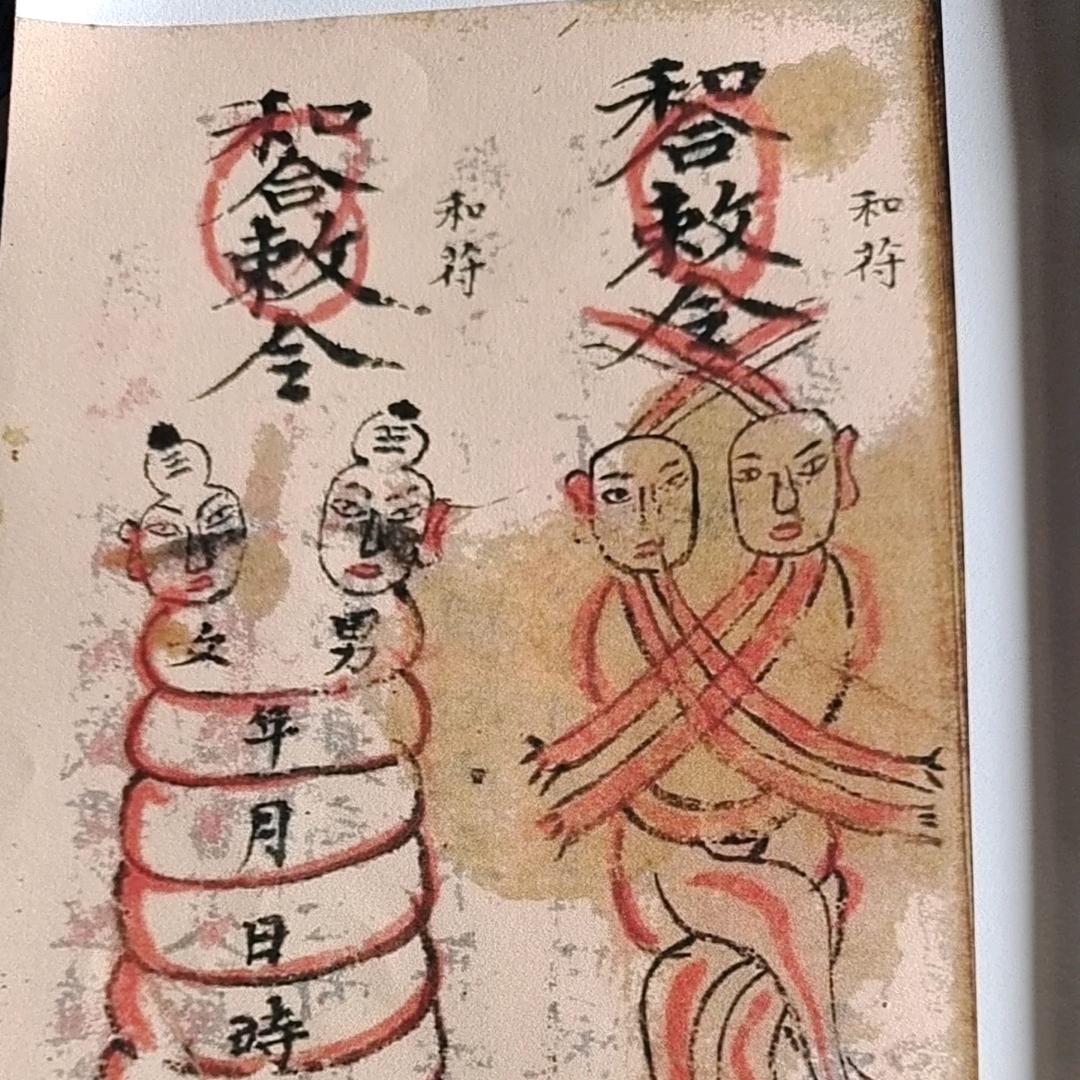 和符
和合敕令
和符
和合敕令
男
女
年月日時